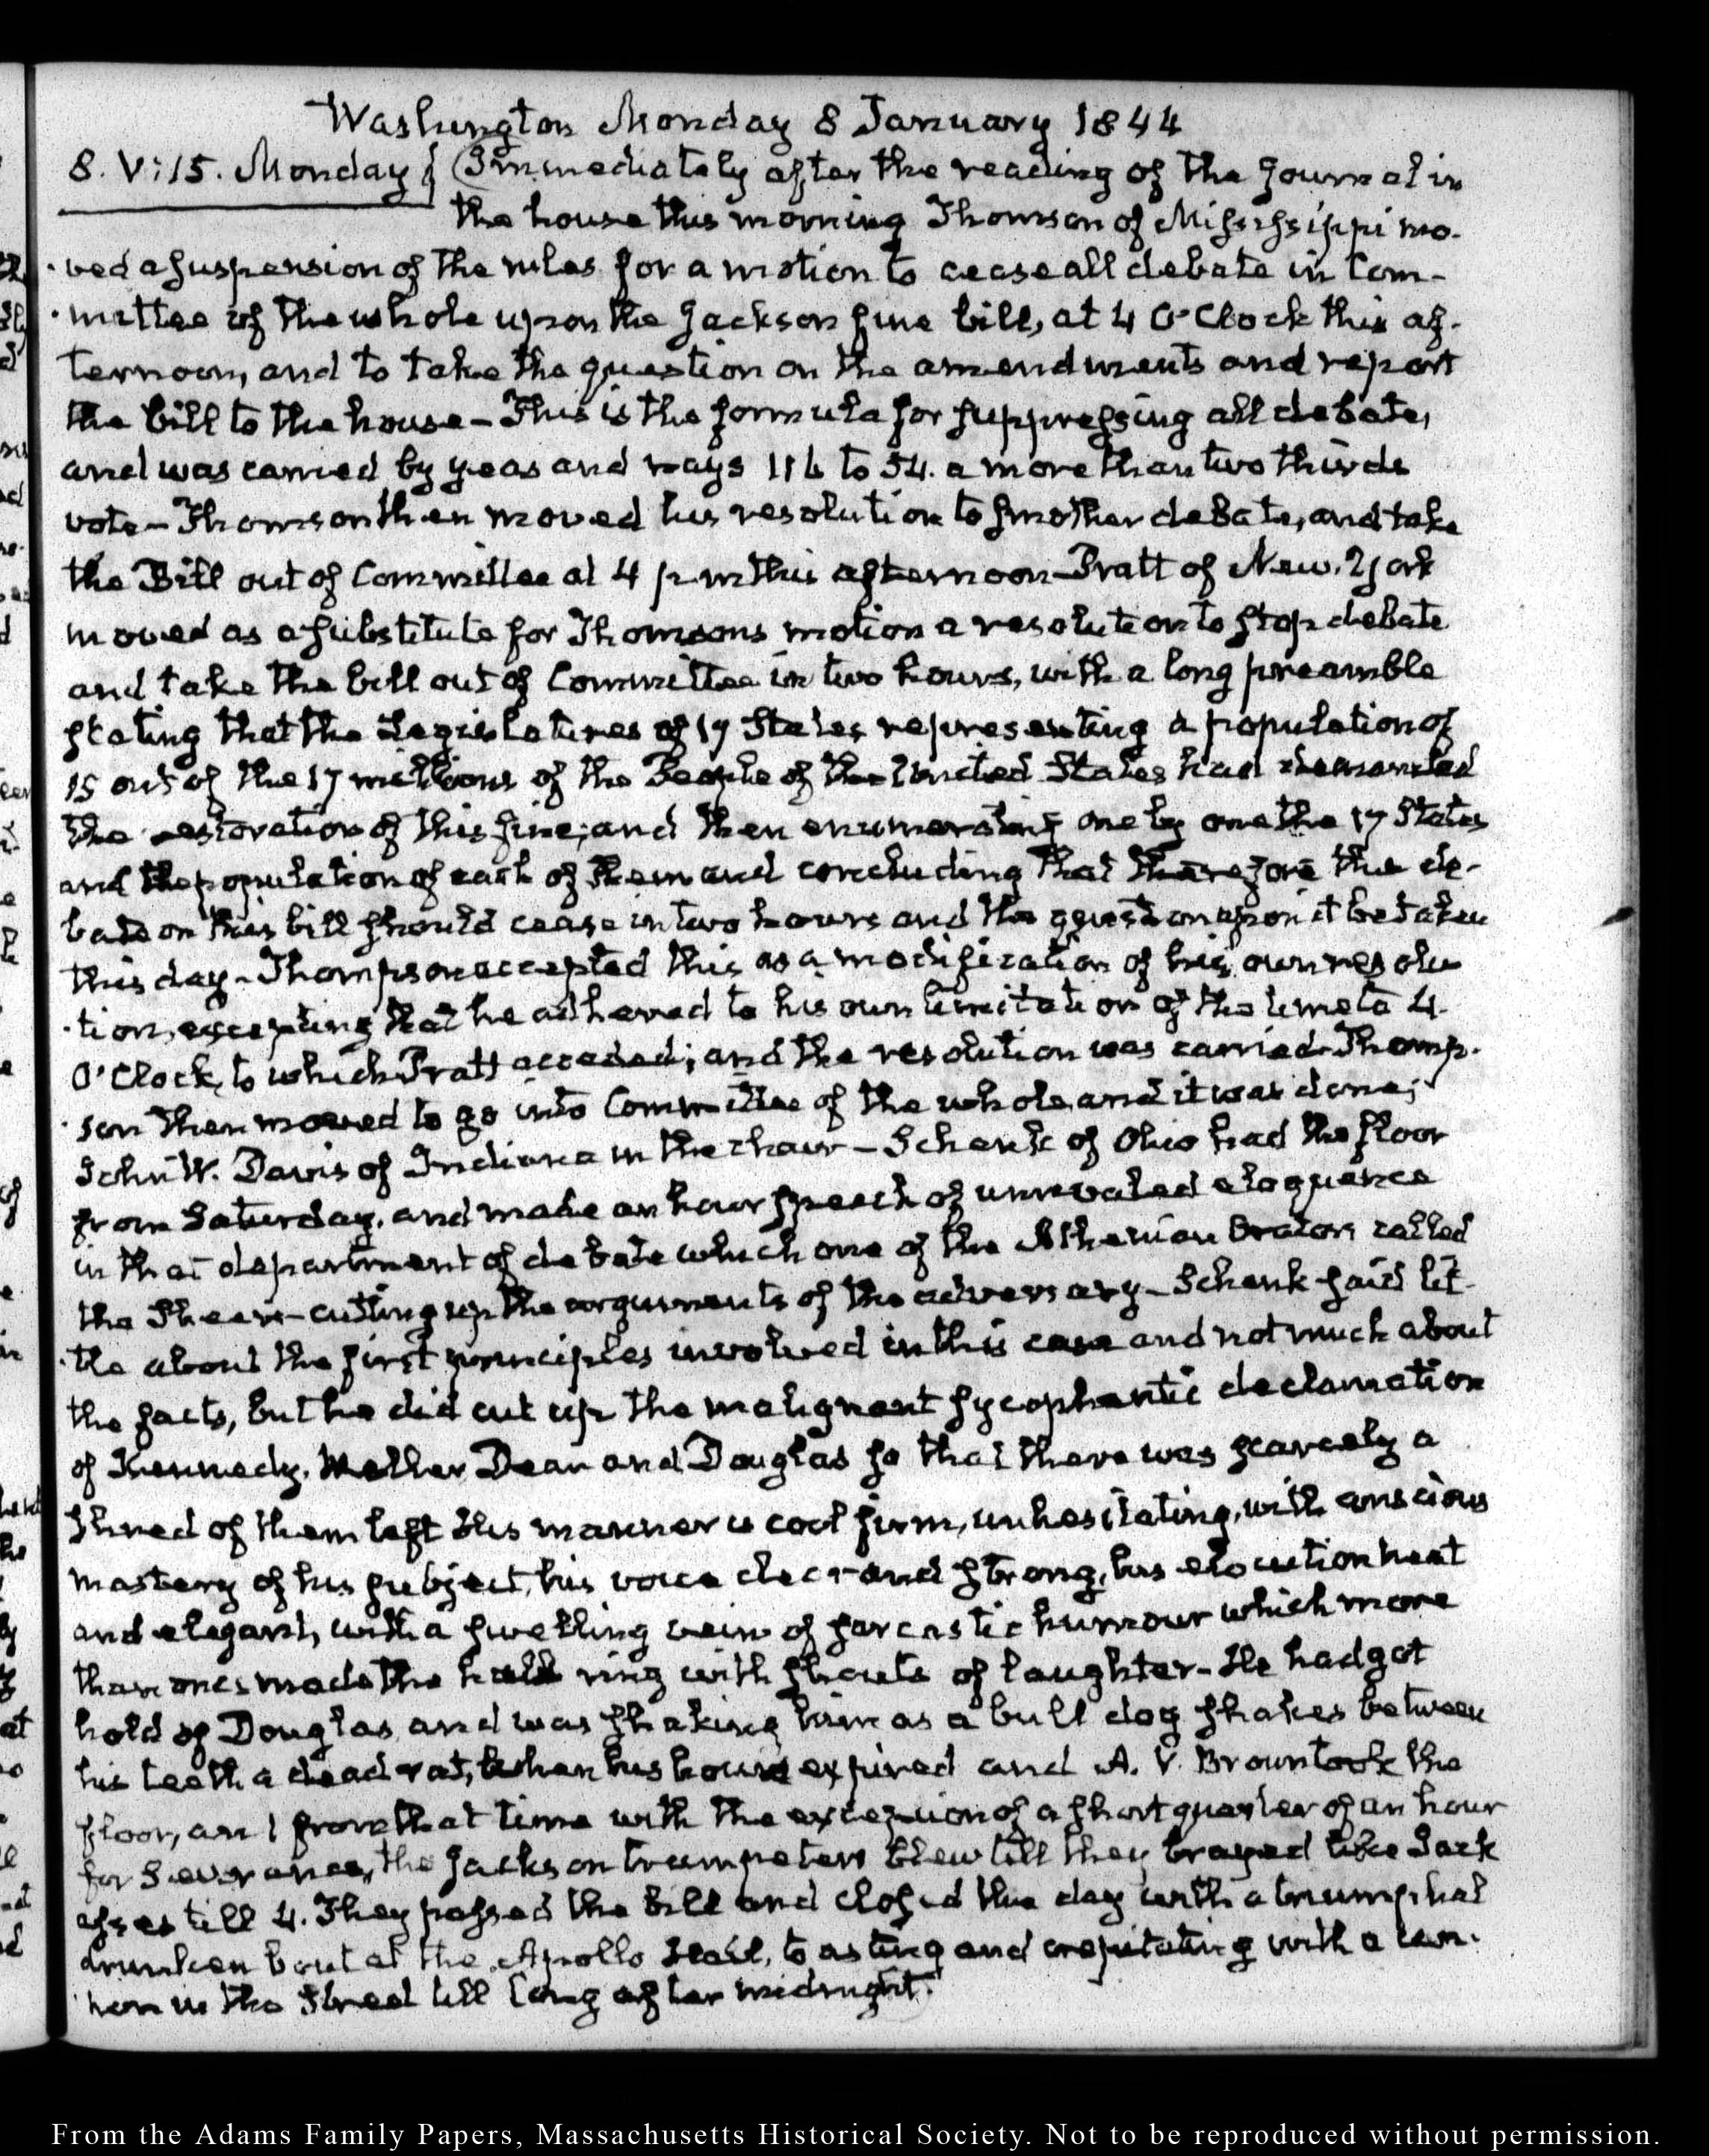 Washington Monday 8 January 1844
8. V:15. Monday } Immediately after the reading of the Journal in
the house this morning Thomson of Mississippi mo-
ved a suspension of the rules for a motion to cease all debate in Com-
mittee of the whole upon the Jackson fine bill, at 4 O'Clock this af-
ternoon, and to take the question on the amendments and report
the bill to the house - This is the formula for suppressing all debate,
and was carried by yeas and nays 116 to 54. a more than two thirds
vote - Thomson then moved his resolution to smother debate, and take
the Bill out of Committee at 4 p m this afternoon - Pratt of New-York
moved as a substitute for Thomsons motion a resolution to stop debate
and take the bill out of Committee in two hours, with a long preamble
stating that the Legislatures of 17 States representing a population of
15 out of the 17 millions of the People of the United States had demanded
the restoration of this fine; and then enumerating one by one the 17 States
and the population of each of them and concluding that therefore the de-
bate on this bill should cease in two hours and the question upon it be taken
this day - Thompson accepted this as a modification of his own resolu
tion, excepting that he adhered to his own limitation of the time to 4.
O'Clock, to which Pratt acceded; and the resolution was carried - Thomp-
son then moved to go into Committee of the whole and it was done;
John W. Davis of Indiana in the chair - Schenk of Ohio had the floor
from Saturday, and made an hour speech of unrivaled eloquence
in that department of debate which one of the Athenian Orators called
the Shears - cutting up the arguments of the adversary - Schenk said lit-
tle about the first principles involved in this case and not much about
the facts, but he did cut up the malignant sycophantic declamation
of Kennedy, Weller Dean and Douglas so that there was scarcely a
shred of them left His manner is cool firm, unhesitating, with conscious
mastery of his subject, his voice clear and strong, his elocution neat
and elegant, with a swelling vein of sarcastic humour which more
than once made the hall ring with shouts of laughter - He had got
hold of Douglas, and was shaking him as a bull dog shakes between
his teeth a dead rat, when his hour expired and A. V. Brown took the
floor, and from that time with the exception of a short quarter of an hour
for Severance, the Jackson trumpeters blew till they brayed like Jack
asses till 4. They passed the bill and closed the day with a triumphal
drunken bout at the Apollo Hall, toasting and crepitating with a can-
non in the Street till long after midnight.
From the Adams Family Papers, Massachusetts Historical Society. Not to be reproduced without permission.